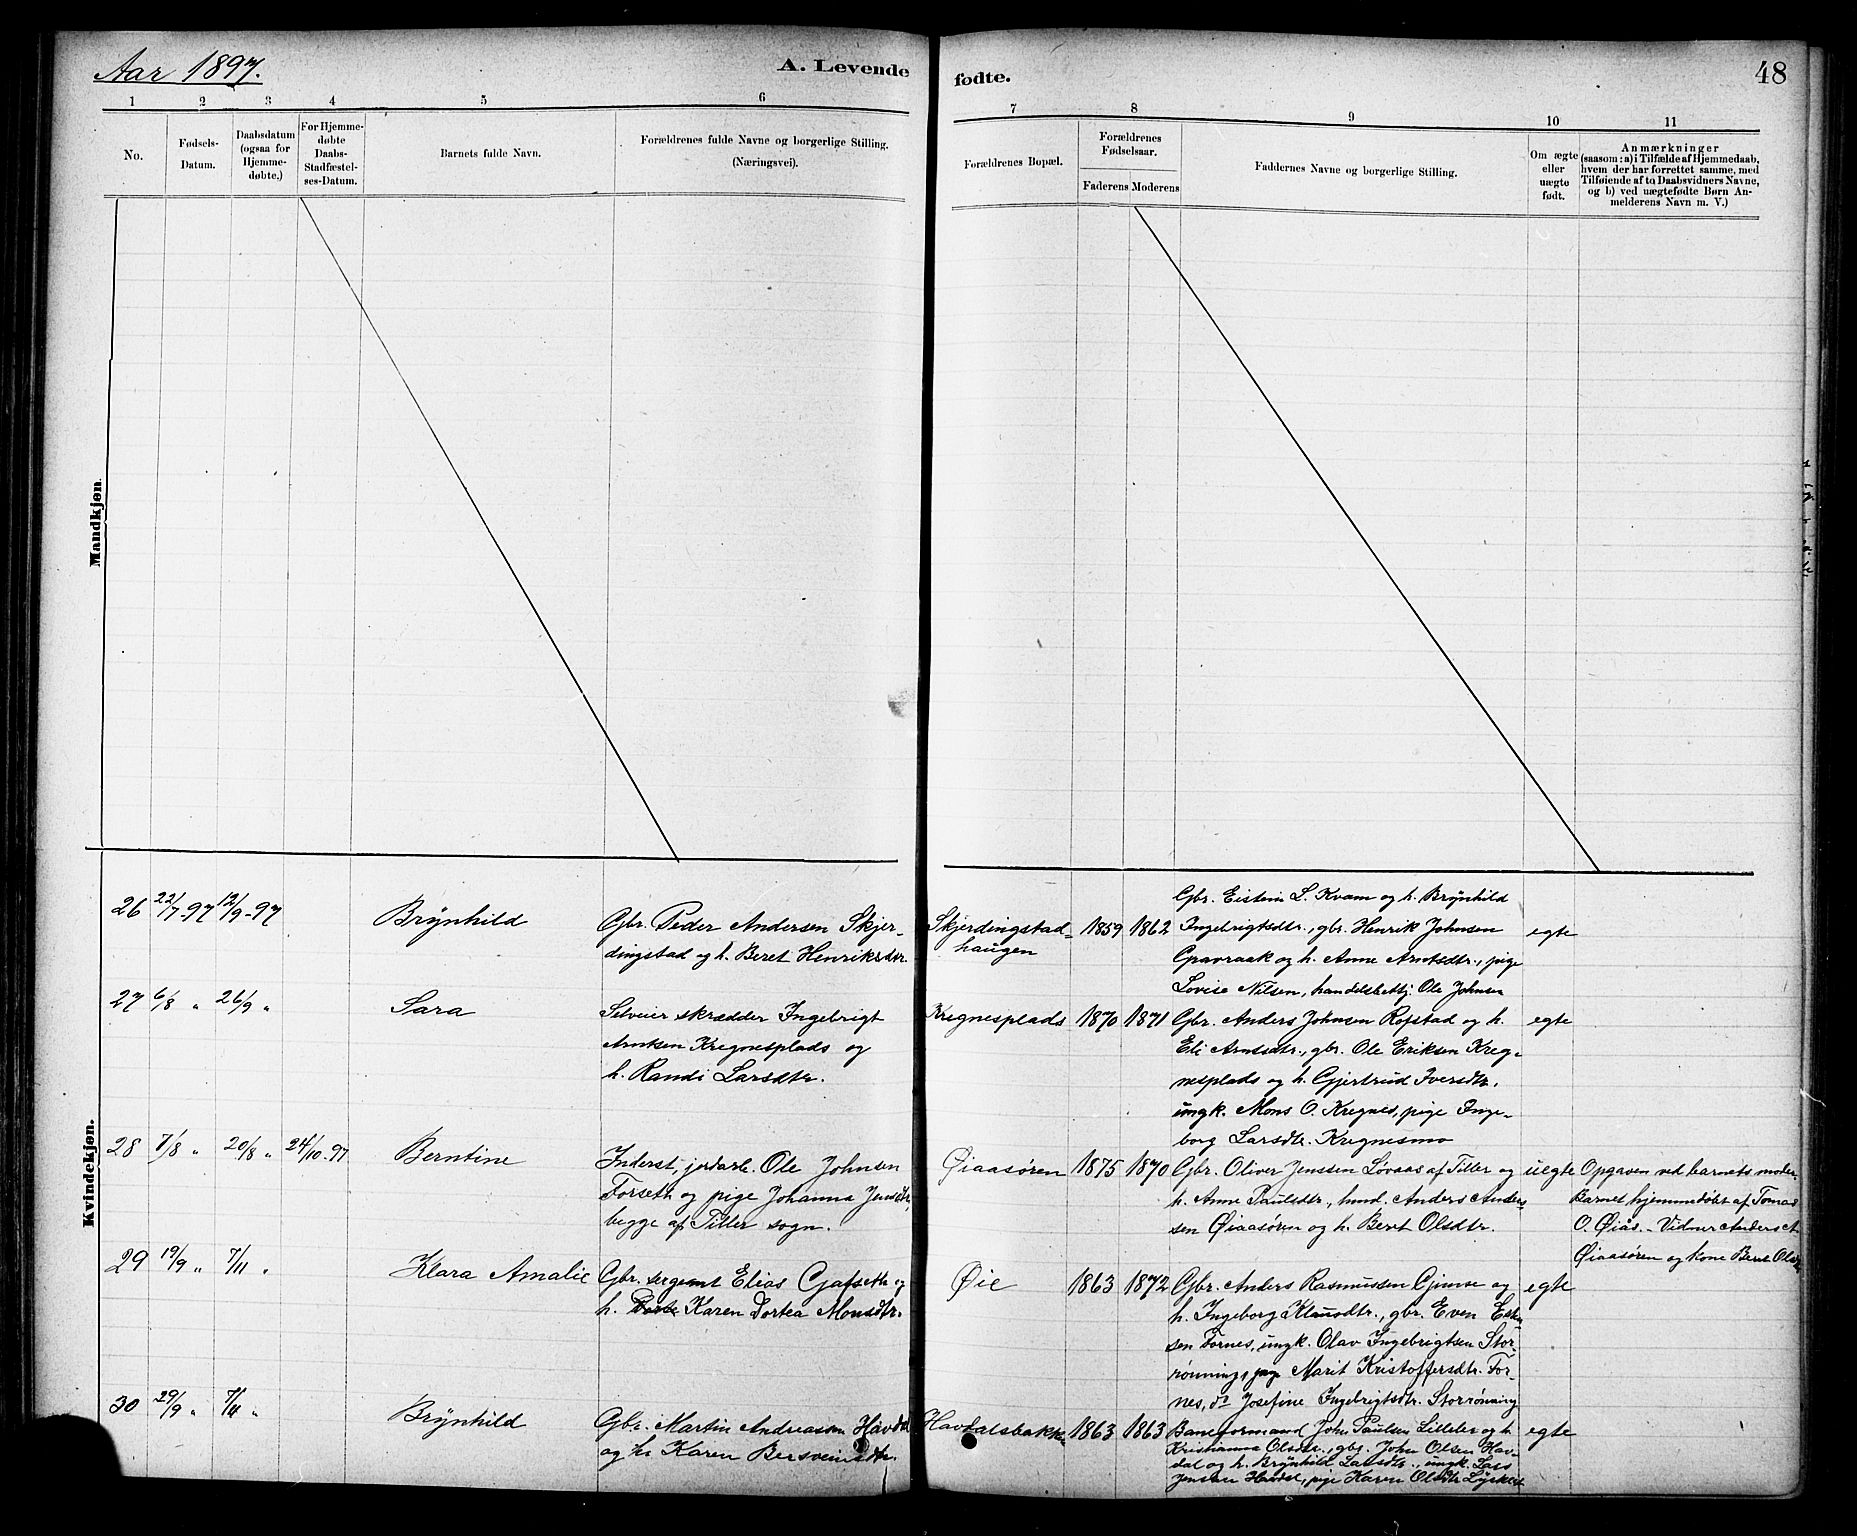 Aar 1897.
A. Levende fødte.
48
1 2 3 4 5 6 7 8 9 10 11
No.
Fødsels-
Datum.
Daabsdatum
(ogsaa for
Hjemme-
døbte.)
For Hjemme-
døbte
Daabs-
Stadfæstel-
ses-Datum.
Barnets fulde Navn.
Forældrenes fulde Navne og borgerlige Stilling.
(Næringsvei).
Forældrenes Bopæl.
Forældrenes
Fødselsaar.
Faderens Moderens
Faddernes Navne og borgerlige Stilling.
Om ægte
eller
uægte
født.
Anmærkninger
(saasom: a) i Tilfælde af Hjemmedaab,
hvem der har forrettet samme, med
Tilføiende af to Daabsvidners Navne,
og b) ved uægtefødte Børn An-
melderens Navn m. V.)
Mandkjøn.
Kvindekjøn.
26 22/7-97 12/9-97
Brynhild
Gbr. Peder Andersen Skjer-
dingstad og h. Beret Henriksdtr.
Skjerdingstad-
haugen
1859 1862
Gbr. Eistein L. Kvam og h. Brynhild
Ingebrigtsdtr., gbr. Henrik Johnsen
Gravraak og h. Anne Arntsdtr., pige
Lovise Nilsen, handelsbetj. Ole Johnsen
egte
27 6/8 " 26/9 "
Sara
Selveier skrædder Ingebrigt
Arntsen Kregnesplads og
h. Randi Larsdtr.
Kregnesplads
1870 1871
Gbr. Anders Johnsen Rofstad og h.
Eli Arntsdtr., gbr. Ole Eriksen Kreg-
nesplads og h. Gjertrud Iversdtr.
ungk. Mons O. Kregnes, pige Inge-
borg Larsdtr. Kregnesmo
egte
28 7/8 " 20/8 " 24/10-97
Berntine
Inderst, jordarb. Ole Johnsen
Forseth og pige Johanna Jensdtr,
begge af Tiller sogn.
Øiaasøren
1875 1870
Gbr. Oliver Jenssen Løvaas af Tiller og
h. Anne Paulsdtr, hmd. Anders Ander-
sen Øiaasøren og h. Beret Olsdtr.
uegte
Opgaven ved barnets moder
Barnet hjemmedøbt af Tomas
O. Øiås. - Vidner Anders A.
Øiaasøren og kone Beret Olsdtr
29 19/9 " 7/11 "
Klara Amalie
Gbr. sergeant Elias Gjafseth og
h. Karen Dortea Monsdtr.
Øie
1863 1872
Gbr. Anders Rasmussen Gimse og
h. Ingeborg Klausdtr., gbr. Even Esten-
sen Fornes, ungk. Olav Ingebrigtsen Stor-
rønning, pige Marit Kristoffersdtr. For-
nes, do Josefine Ingebrigtsdtr. Storrønning
egte
30 29/9 " 7/11 "
Brynhild
Gbr. Martin Andreassen Havdal
og h. Karen Bersveinsdtr.
Havdalsbakke
1863 1863
Baneformand John Paulsen Lilleler og h.
Kristianna Olsdtr., gbr. John Olsen Hav-
dal og h. Brynhild Larsdtr., ungk. Lars
Jensen Havdal, pige Karen Olsdtr.
egte